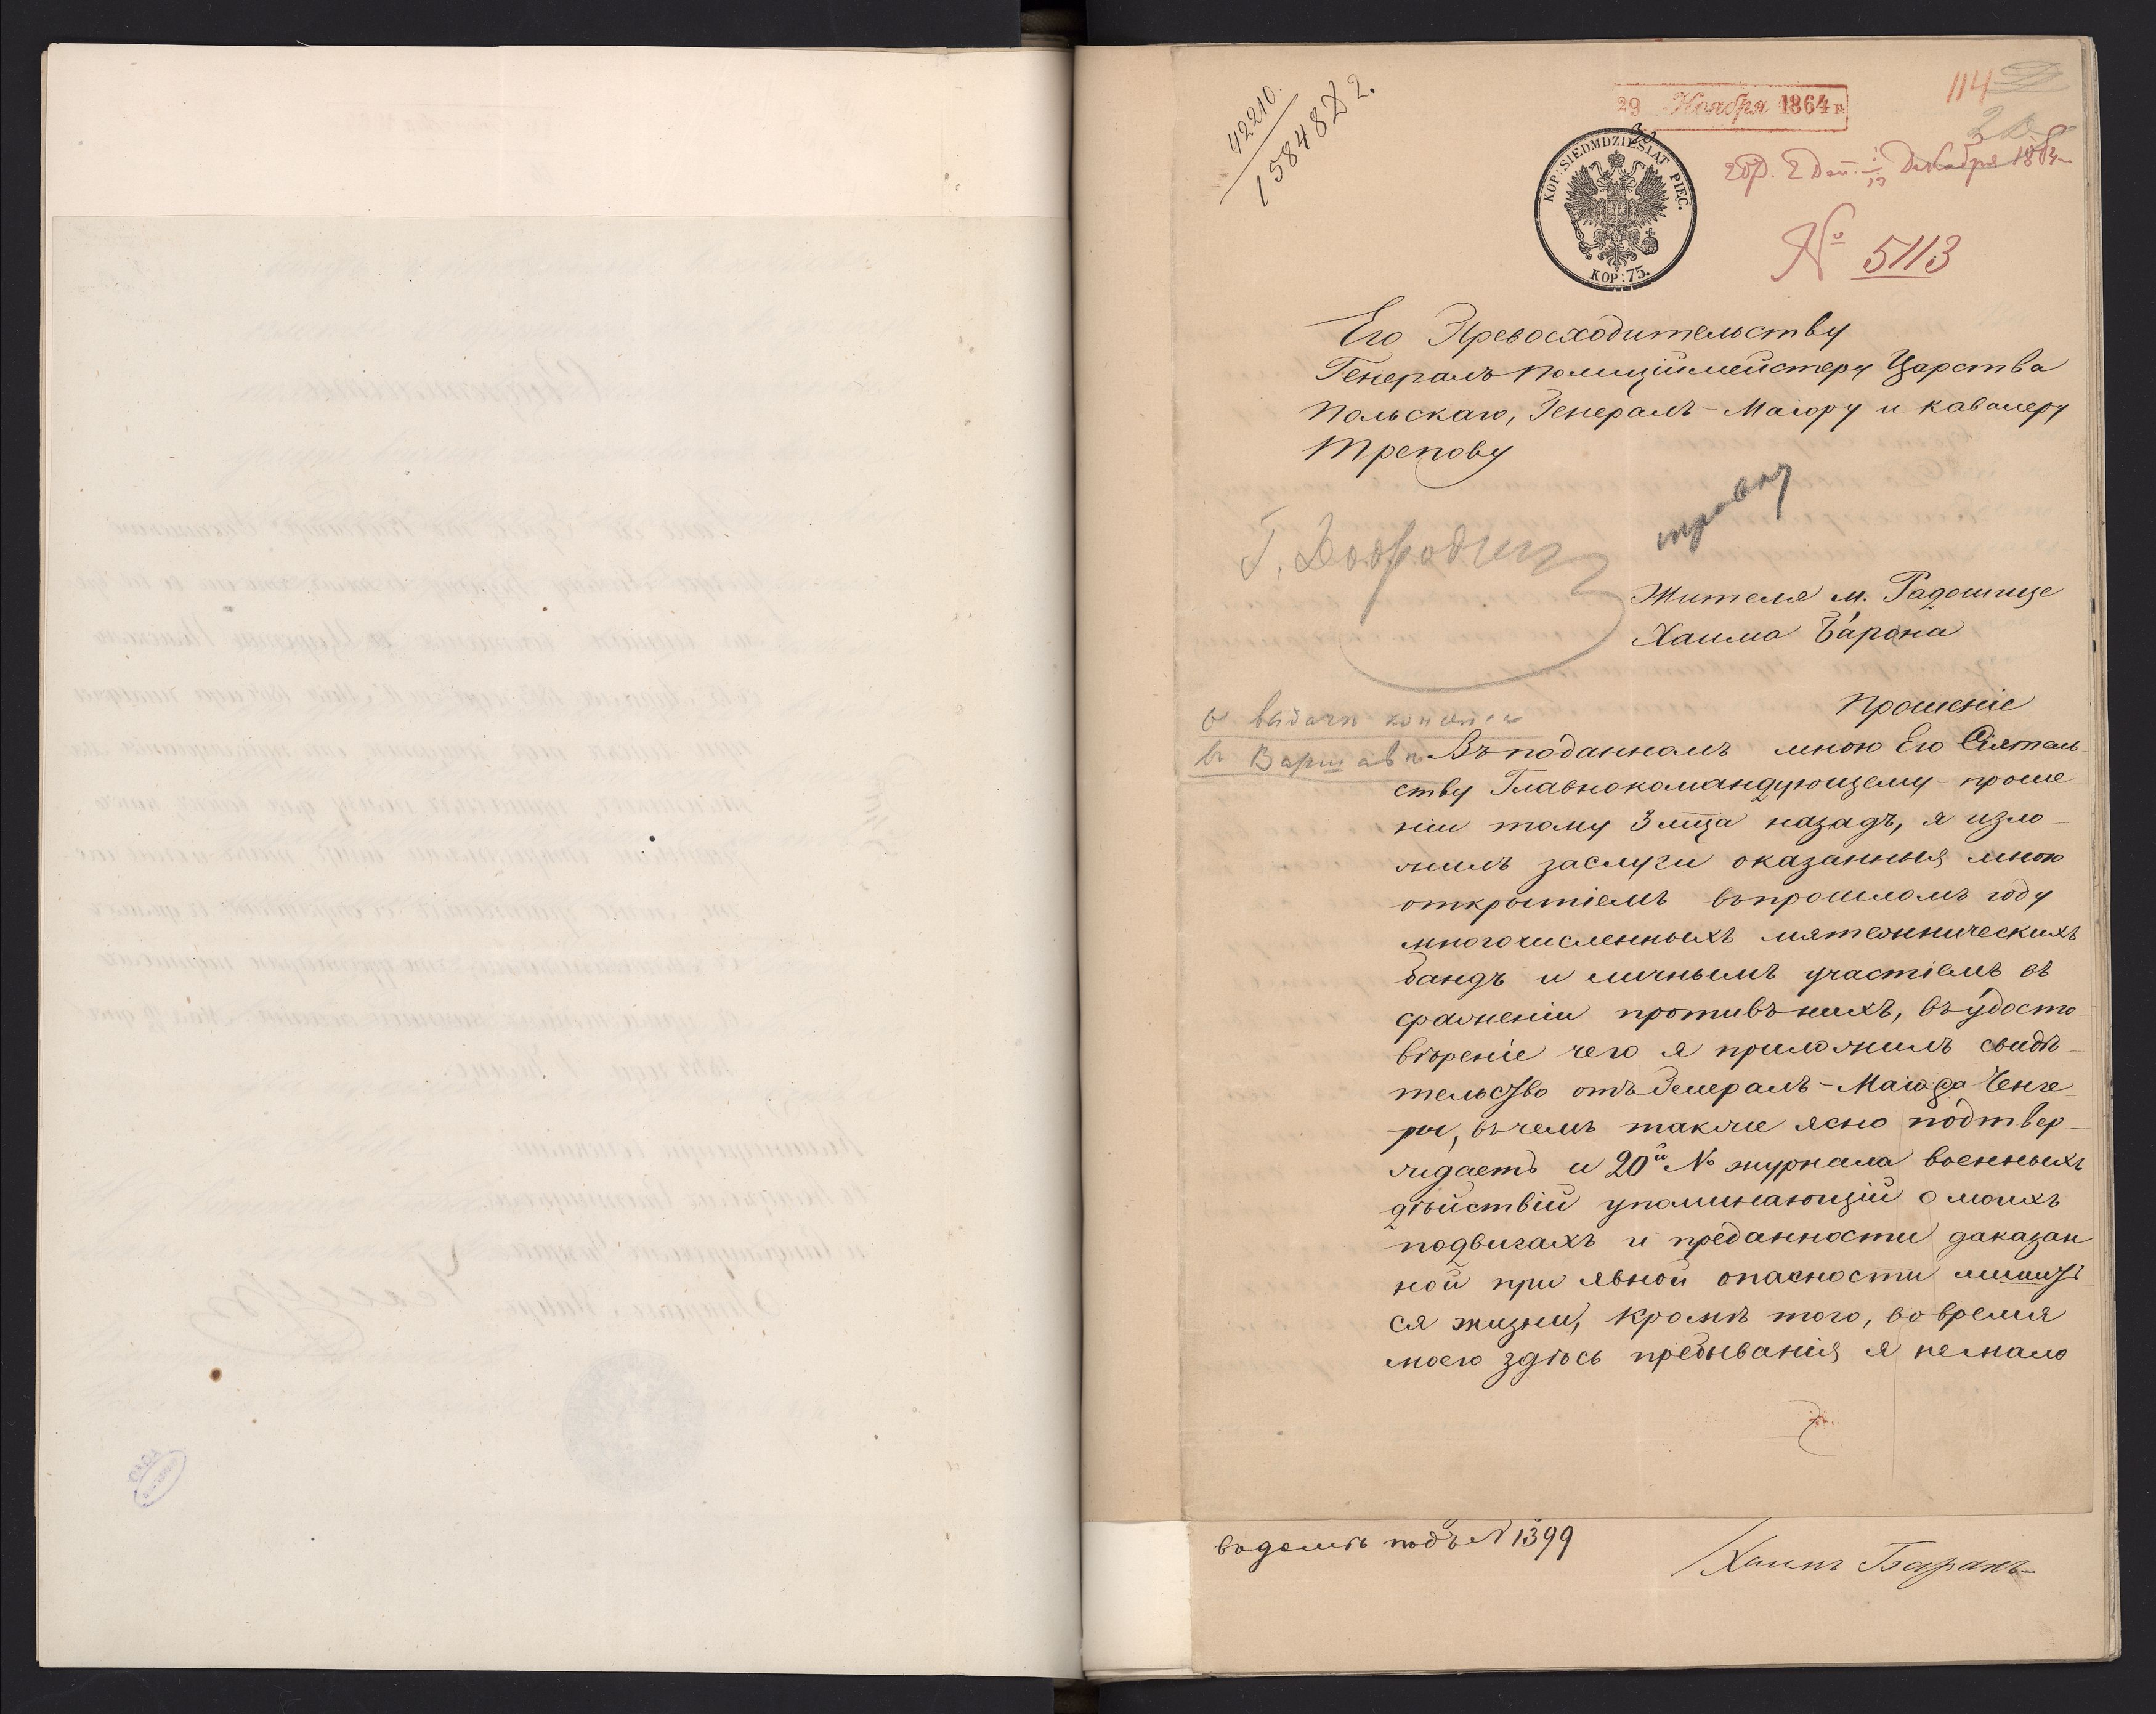 42210.
158482.
29 Ноября 1864 г.
114
Декабря 1864
№ 5113
KOP: SIEDMDZIESIĄT PIĘC.
KOP: 75.
Его Превосходительству
Генералъ Полиціймейстеру Царства
Польскаго, Генералъ-Маіору и кавалеру
Трепову
Жителя м. Радошице
Хаима Барона
Прошеніе
о выдачи
въ Варшавѣ
Въ поданномъ мною Его Сіятель
ству Главнокомандующему - проше
ніи тому 3 мца назадъ, я изло-
жилъ заслуги оказанныя мною
открытіемъ въ прошломъ году
многочисленныхъ мятежническихъ
бандъ и личнымъ участіемъ въ
сраженіи противъ нихъ, въ удосто-
вѣреніе чего я приложилъ свидѣ-
тельство отъ Генералъ-Маіора Ченге-
ри, въ чемъ также ясно подтвер-
ждаетъ и 20й № журнала военныхъ
дѣйствій упоминающій о моихъ
подвигахъ и преданности даказан
ной при явной опасности лишить
ся жизни, Кромѣ того, во время
моего здѣсь пребыванія я немало
подъ N 1399
Хаимъ Баранъ